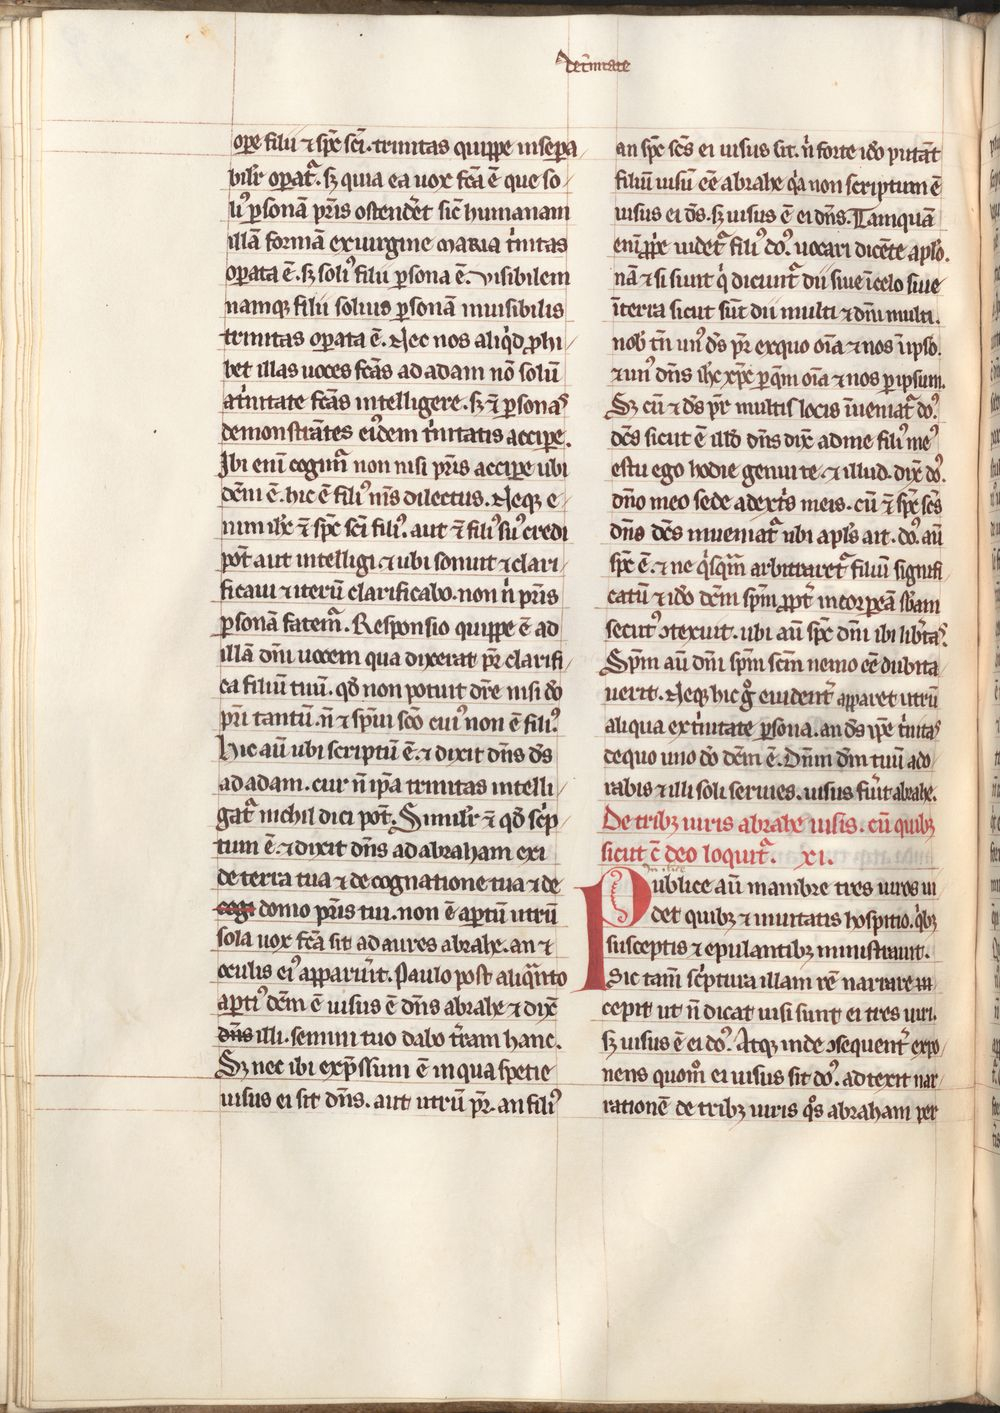 De t̾nitate
ope filii ⁊ sp̄c sc̄i. trinitas quippe insepa
bilr̄ opat᷑. sꝫ quia ea uox fc̄a ē que so
liꝰ ꝑsonā pr̄is ostendēt sic̄ humanam
illā formā ex uirgine maria t̾nitas
oꝑata ē. sꝫ soliꝰ filii ꝑsona ē. visibilem
namqꝫ filii solius ꝑsonā inuisibilis
trinitas oꝑata ē. Nec nos aliqͥd ꝓhi
bet illas uoces fc̄as ad adam nō solū
a t̾nitate fc̄as intelligere. sꝫ ⁊ ꝑsonaꝰ
demonstrātes eiꝰdem t̾nitatis accipe.
Ibi enī cogim᷑ non nisi pr̄is accipe ubi
dc̄m ē. hic ē filiꝰ mꝰs dilectus. Neqꝫ e
nim ih̄c ⁊ sp̄c sc̄i filiꝰ. aut ⁊ filiꝰ suꝰ credi
pōt aut intelligi. ⁊ ubi sonuit ⁊ clari
ficaui ⁊ iterū clarificabo. non n̾ pr̄is
ꝑsonā fatem᷑. Responsio quippe ē ad
illā dn̄i uocem qua dixerat pr̄ clarifi
ca filiū tuū. qd̄ non potuit dr̄e nisi dō
pr̄i tantū. n̄ ⁊ sp̄ui sc̄o cuiꝰ non ē filiꝰ.
hic aū ubi scriptū ē. ⁊ dixit dn̄s ds̄
ad adam. cur n̄ ip̄a trinitas intelli
gat᷑ nichil dici pōt. Similr̄ ⁊ qd̄ sc̾p
tum ē. ⁊ dixit dn̄s ad abraham exi
de terra tua ⁊ de cognatione tua ⁊ de
cogi domo pr̄is tui. non ē aꝑtū utrū
sola uox fc̄a sit ad aures abrahe. an ⁊
oculis eiꝰ apparuꝰit. Paulo post aliqͣnto
aꝑtiꝰ dc̄m ē uisus ē dn̄s abrahe ⁊ dix̄
dn̄s illi. semini tuo dabo t̾ram hanc.
Sꝫ nec ibi exp̄ssum ē in qua spetie
uisus ei sit dn̄s. aut utrū pr̄. an filiꝰ
an sp̄c sc̄s ei uisus sit. n̾ forte id̾o putāt
filiū uisū eē abrahe qͥa non scriptum ē
uisus ei ds̄. sꝫ uisus ē ei dn̄s. Tamquā
enī ꝓpͥe uidet᷑ filiꝰ doꝰ. uocari dicēte apl̄o.
nā ⁊ si sunt qͥ dicunt᷑ dii siue ī celo siue
ī terra sicut sūt dii multi ⁊ dn̄i multi.
nob̄ tn̄ unꝰ ds̄ pr̄ ex quo oīa ⁊ nos ī ipso.
⁊ unꝰ dn̄s ih̄c xp̄c ꝑ qm̄ oīa ⁊ nos ꝑ ipsum.
Sꝫ cū ⁊ ds̄ pr̄ multis locis īueniat᷑ doꝰ.
dc̄s sicut ē illd̄ dn̄s dix̄ ad me filiꝰ meꝰ
es tu ego hodie genui te. ⁊ illud. dix̄ doꝰ.
dn̄o meo sede a dext̾s meis. cū ⁊ sp̄c sc̄s
dn̄s dc̄s inueniat᷑ ubi apl̄s ait. doꝰ. aū
sp̄c ē. ⁊ ne qͥsqͣm arbitraret᷑ filiū signifi
catū ⁊ id̾o dc̄m sp̄m ꝓpt̾ incorpeā sb̄am
secutꝰ ↄtexuit. ubi aū sp̄c dn̄i ibi lib̾taꝰ.
Sp̄m aū dn̄i sp̄m sc̄m nemo eē dubita
uerit. Neqꝫ hic gͦ euident̾ apparet utrū
aliqua ex t̾nitate ꝑsona. an ds̄ ip̄e t̾nitaꝰ
de quo uno dō dc̄m ē. dn̄m dm̄ tuū ado
rabis ⁊ illi soli seruies. uisus fu̾it abrahe.
De tribꝫ uiris abrahe uisis. cū quibꝫ
sicut c̄ deo loquit᷑. XI.
Publice aū mambre tres uires ui
det quibꝫ ⁊ inuitatis hospitio. qͥbꝫ
susceptis ⁊ epulantibꝫ ministrauit.
Sic tam̄ sc̾ptura illam rē narrare in
cepit ut n̄ dicat uisi sunt ei tres uiri.
sꝫ uisus ē ei doꝰ. Atqꝫ inde ↄsequent̾ expo
nens quom̊ ei uisus sit doꝰ. adtexit nar
rationē de tribꝫ uiris qͦs abraham per